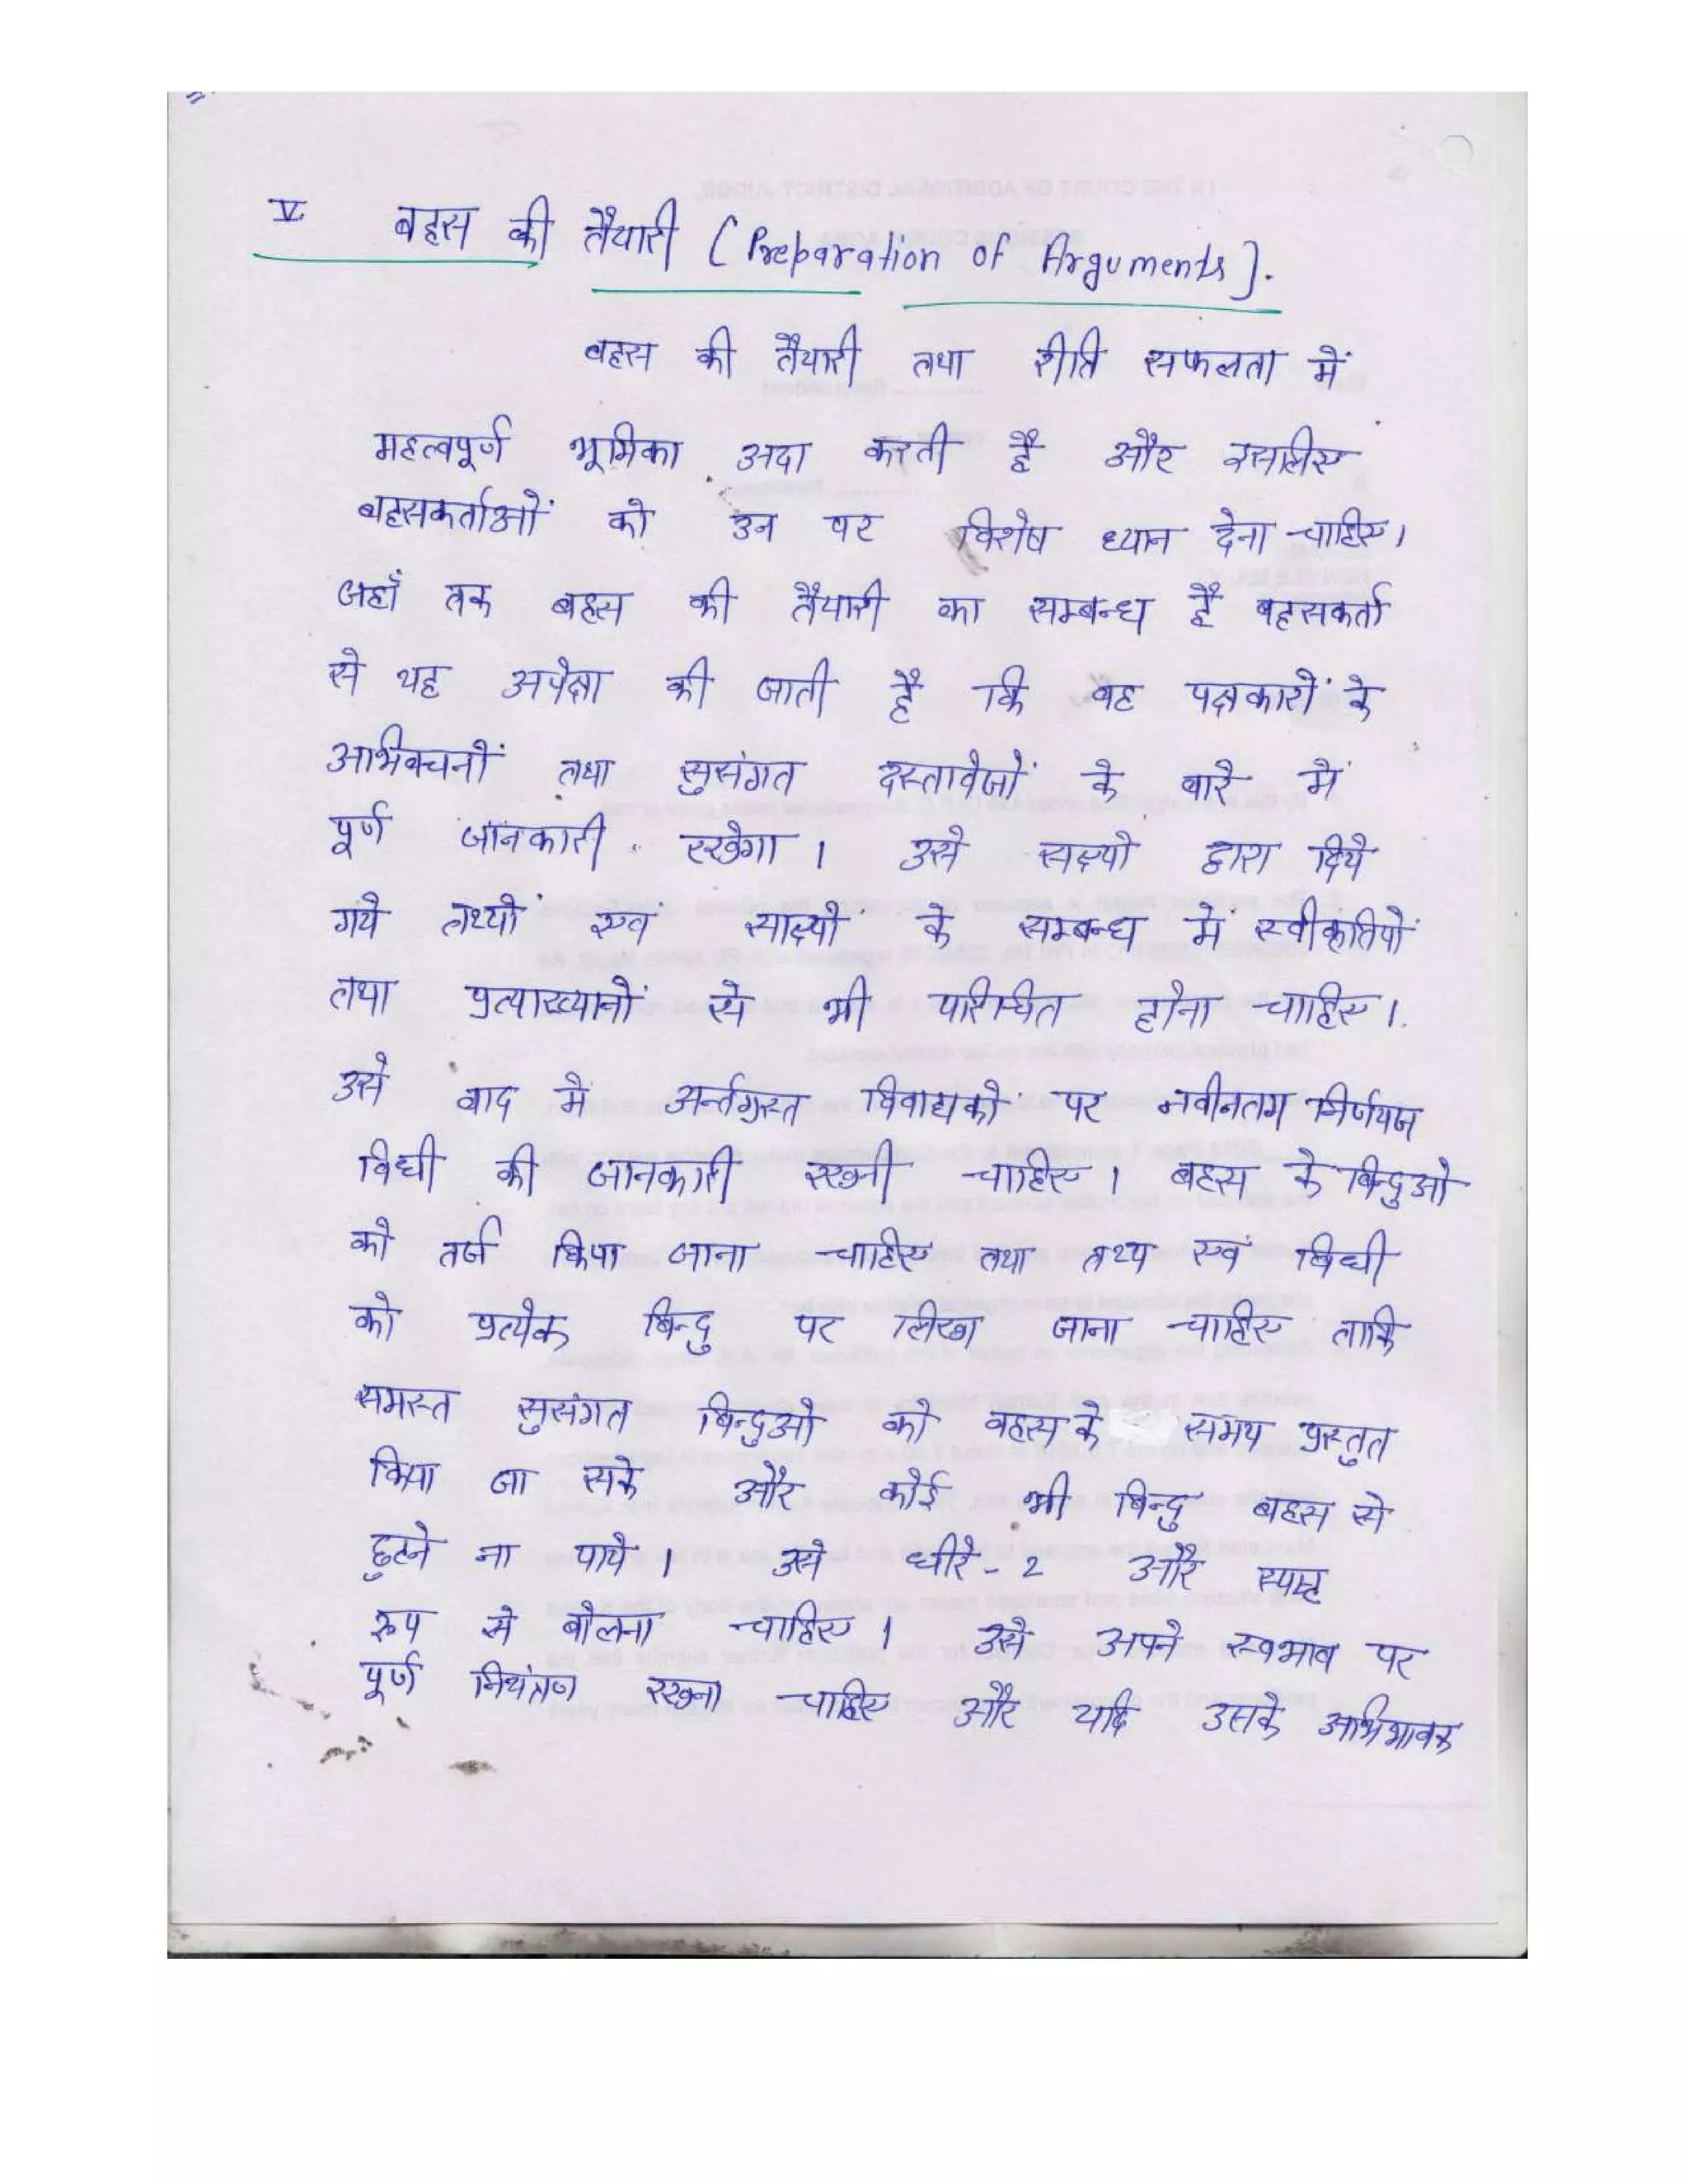 V बहस की तैयारी (Preparation of Arguments).
बहस की तैयारी तथा रीति सफलता में
महत्वपूर्ण भूमिका अदा करती है और इसलिए
बहसकर्ताओं को उन पर विशेष ध्यान देना चाहिए।
जहाँ तक बहस की तैयारी का सम्बन्ध है बहसकर्ता
से यह अपेक्षा की जाती है कि वह पक्षकारों के
अभिवचनों तथा सुसंगत दस्तावेजों के बारे में
पूर्ण जानकारी रखेगा। उसे सक्ष्यो द्वारा दिये
गये तथ्यों एवं साक्ष्यों के सम्बन्ध में स्वीकृतियों
तथा प्रत्याख्यानों से भी परिचित होना चाहिए।
उसे वाद में अर्न्तग्रस्त विवाद्यकों पर नवीनतम निर्णयज
विधी की जानकारी रखनी चाहिए। बहस के बिन्दुओ
को तर्ज किया जाना चाहिए तथा तथ्य एवं विधी
को प्रत्येक बिन्दु पर लिखा जाना चाहिए ताकि
समस्त सुसंगत बिन्दुओ को बहस के समय प्रस्तुत
किया जा सके और कोई भी बिन्दु बहस से
छुटने ना पाये। उसे धीरे-2 और स्पष्ट
रूप से बोलना चाहिए। उसे अपने स्वभाव पर
पूर्ण नियंत्रण रखना चाहिए और यदि उसके अभिभावक